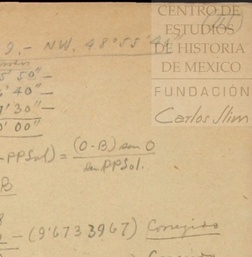 CENTRO DE
ESTUDIOS
DE HISTORIA
DE MEXICO
FUNDACIÓN
Carlos Slim
9.- NW. 48°55'
5' 50"-
' 40"-
' 30"-
0' 00"
PPSol) = (O-B) sen O
sen PPSol.
- (9'6733967) Corregido